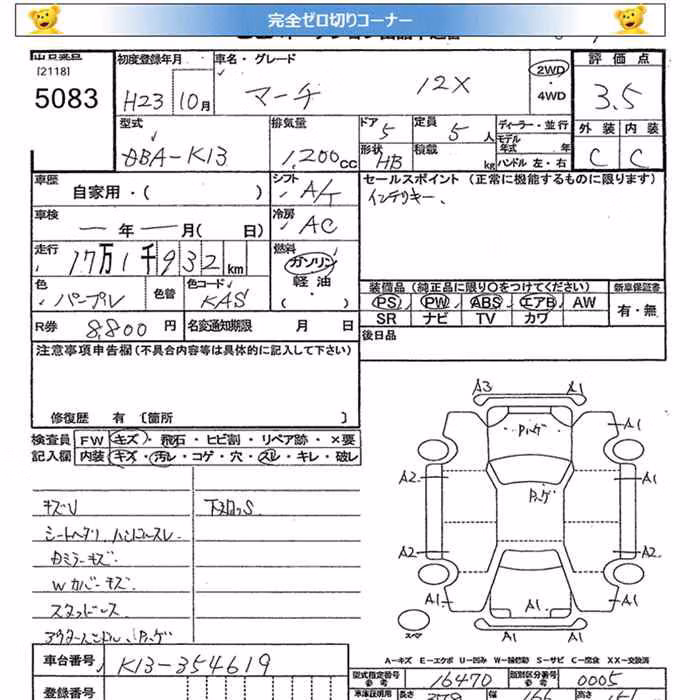 完全ゼロ切りコーナー
[2118]
5083
初度登録年月
H23 10月
車名・グレード
マーチ 12X
2WD
・
4WD
評価点
3.5
外装 内装
C C
型式
DBA-K13
排気量
1,200cc
ドア 5
定員 5人
形状 HB
積載 kg
ディーラー・並行
モデル年式 年
ハンドル 左・右
車歴
自家用・( )
シフト
A/T
車検
ー年ー月( 日)
冷房
AC
走行
17万1千932km
燃料
ガソリン
・
軽油
・( )
色
パープル
色替
色コード
KAS
R券 8,800円
名変通知期限 月 日
セールスポイント (正常に機能するものに限ります)
インテリキー、
装備品(純正品に限り○をつけてください)
PS PW ABS エアB AW
SR ナビ TV カワ
新車保証書
有・無
後日品
注意事項申告欄(不具合内容等は具体的に記入して下さい)
修復歴 有〔箇所 〕
検査員記入欄
FW キズ・飛石・ヒビ割・リペア跡・×要
内装 キズ・汚レ・コゲ・穴・スレ・キレ・破レ
キズU
下廻りS
シートヘタリ ハンドルスレ
Wカバーキズ
スタッドレス
A3 A1
Pハゲ
A1
A2 Pハゲ A1
A2 A2
A1 A1 A1 A1
スペア
A-キズ E-エクボ U-凹み W-補修跡 S-サビ C-腐食 XX-交換済
車台番号 K13-354619
登録番号
型式指定番号 参考 16470
類別区分番号 参考 0005
車庫証明用
長さ
幅
高さ